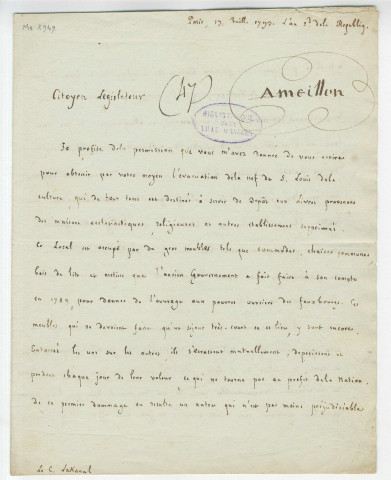 Paris, 17 Juill. 1793. L'an 2e de la Républiq.
Ms X949
Citoyen Législateur
(47)
Ameilhon
Je profite de la permission que vous m'avez donnée de vous écrire
pour obtenir par votre moyen l'évacuation de la nef de S. Louis de la
culture, qui de tout tems est destinée à servir de dépôt aux livres provenans
des maisons ecclésiastiques, religieuses et autres établissemens supprimés.
Ce Local est occupé par de gros meubles tels que commodes, chaises communes,
bois de lits et autres que l'ancien Gouvernement a fait faire à son compte
en 1789, pour donner de l'ouvrage aux pauvres ouvriers des fauxbourgs. Ces
meubles qui ne devoient faire qu'un séjour très-court en ce lieu, y sont encore.
Entassés les uns sur les autres ils s'écrasent mutuellement, dépérissent et
perdent chaque jour de leur valeur, ce qui ne tourne pas au profit de la Nation.
de ce premier dommage en résulte un autre qui n'est pas moins préjudiciable
Le C. Lakanal